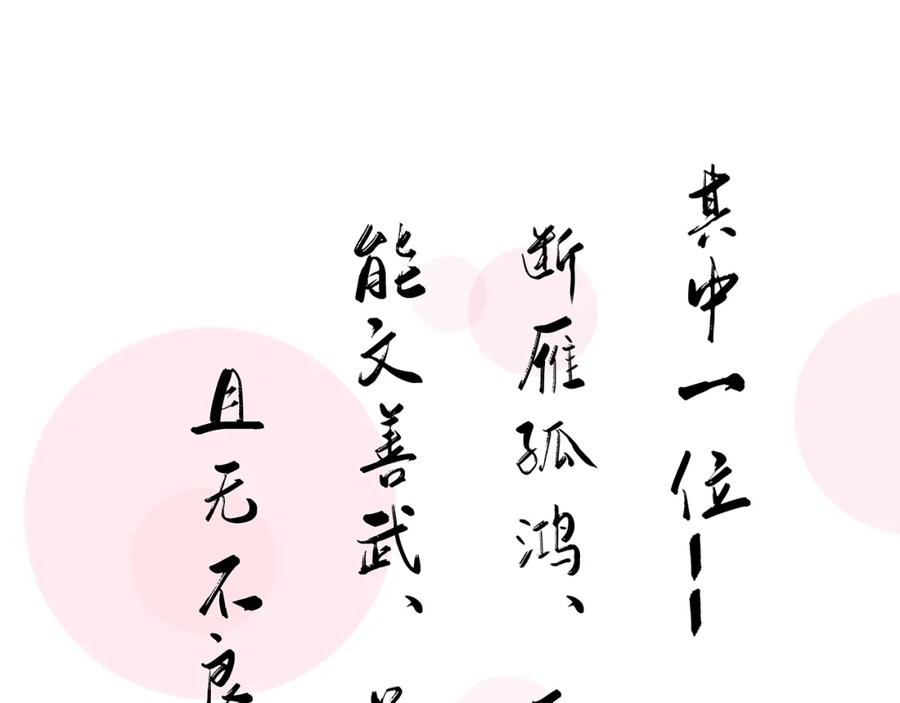 其中一位——
断雁孤鸿、
能文善武、
且无不良